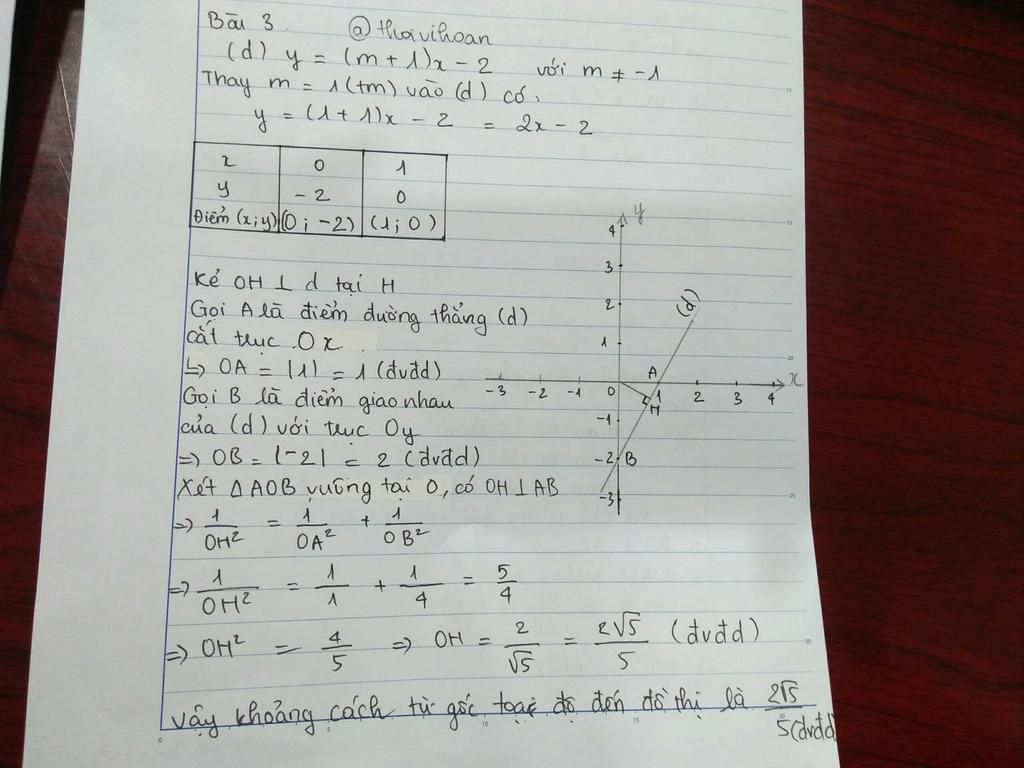 Bài 3. @thaivihoan
(d) y = (m + 1)x - 2 với m ≠ -1
Thay m = 1 (tm) vào (d) có,
y = (1 + 1)x - 2 = 2x - 2
x 0 1
y - 2 0
Điểm (x; y) (0 ; -2) (1 ; 0)
Kẻ OH ⊥ d tại H
Gọi A là điểm đường thẳng (d)
cắt trục Ox
↳ OA = |1| = 1 (đvđd)
Gọi B là điểm giao nhau
của (d) với trục Oy
⇒ OB = |-2| = 2 (đvđd)
Xét Δ AOB vuông tại O, có OH ⊥ AB
⇒ 1/OH² = 1/OA² + 1/OB²
⇒ 1/OH² = 1/1 + 1/4 = 5/4
⇒ OH² = 4/5 ⇒ OH = 2/√5 = 2√5/5 (đvđd)
Vậy khoảng cách từ gốc toạ độ đến đồ thị là 2√5/5 (đvđd)
y
4
3
2 (d)
1
A
-3 -2 -1 0 1 2 3 4 x
H
-1
-2 B
-3